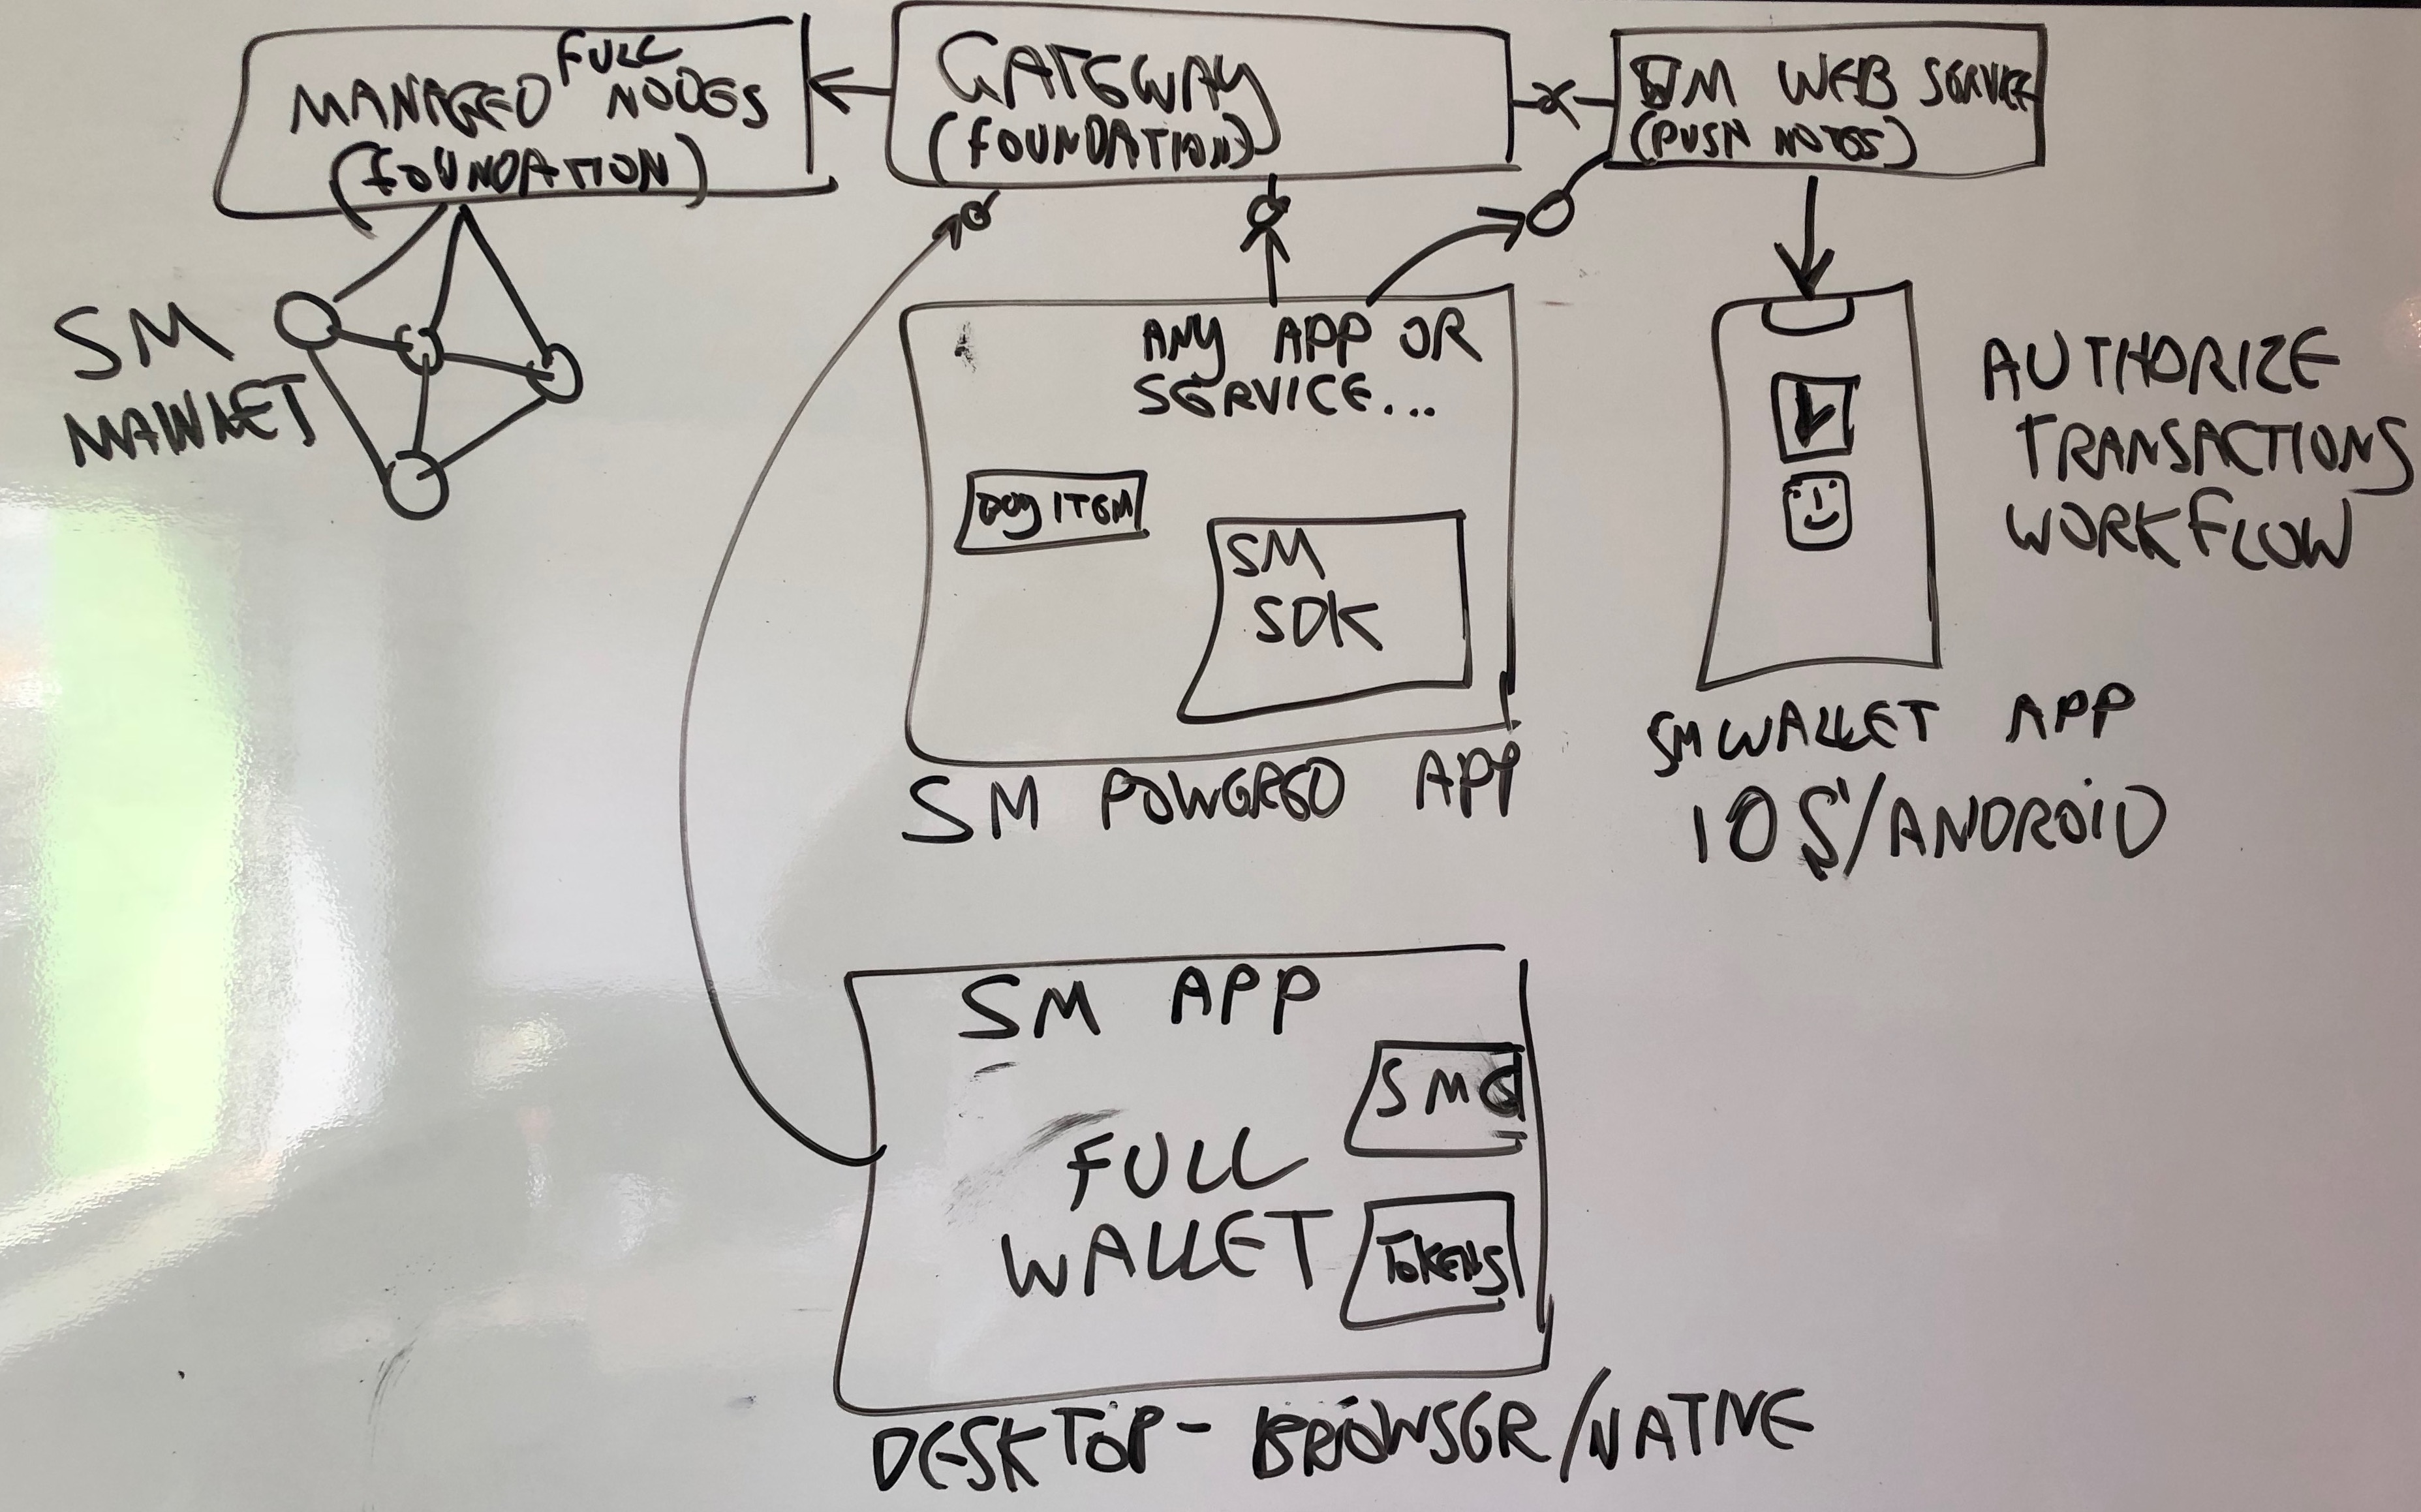 MANAGED FULL NODES
(FOUNDATION)
GATEWAY
(FOUNDATION)
WM WEB SERVICE
(PUSH NOTES)
SM
MAINNET
ANY APP OR
SERVICE...
BUY ITEM
SM
SDK
SM POWERED APP
AUTHORIZE
TRANSACTIONS
WORKFLOW
SM WALLET APP
IOS/ANDROID
SM APP
SMC
FULL
WALLET
TOKENS
DESKTOP - BROWSER/NATIVE